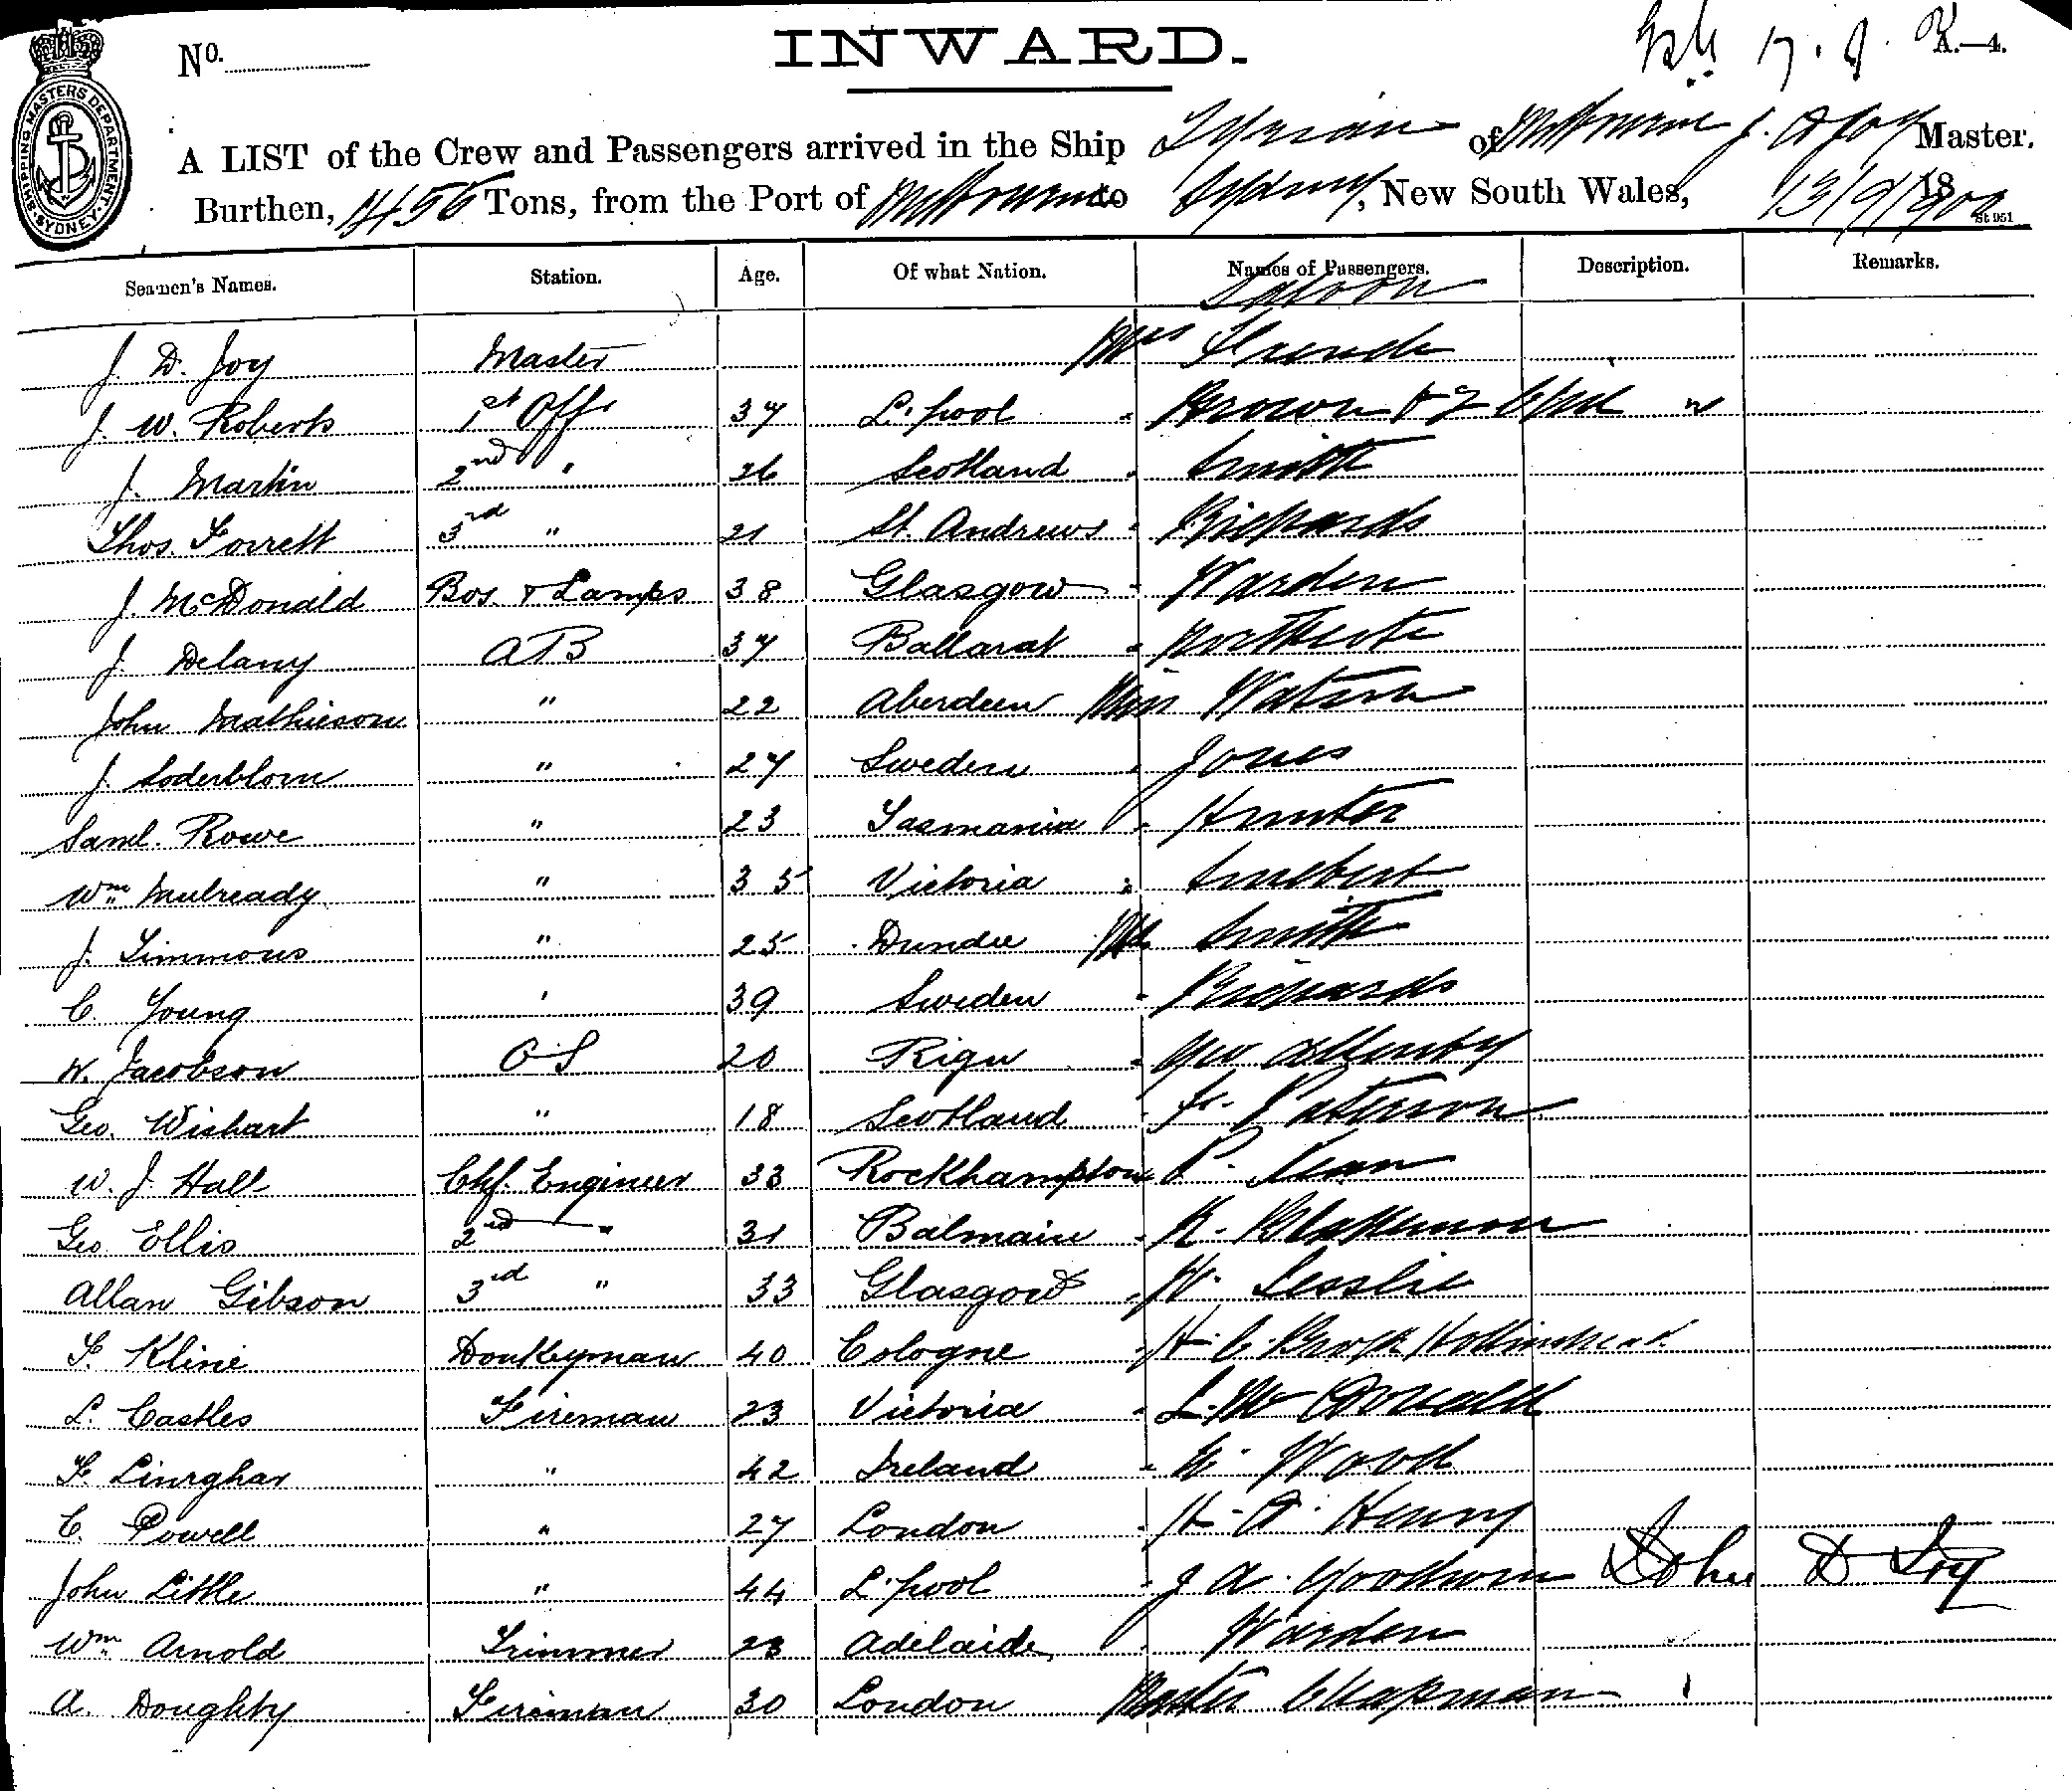 INWARD.
No.
A.—4.
SHIPPING MASTERS DEPARTMENT. SYDNEY.
A LIST of the Crew and Passengers arrived in the Ship Tyrian of Melbourne J. D Joy Master.
Burthen, 1456 Tons, from the Port of Melbourne to Sydney, New South Wales, 13/9/1900
St 951
Seamen's Names. Station. Age. Of what Nation. Names of Passengers. Description. Remarks.
Saloon
J. D. Joy Master Mrs French
J. W. Roberts 1st Offr 37 L'pool " Brown & 2 Chd
J. Martin 2nd " 26 Scotland " Smith
Thos. Forrett 3rd " 21 St. Andrews " Richards
J. McDonald Bos. & Lamps 38 Glasgow " Warden
J. Delany AB 37 Ballarat " Northcote
John Mathieson " 22 Aberdeen Miss Watson
J. Soderblom " 27 Sweden " Jones
Saml. Rowe " 23 Tasmania " Hunter
Wm Mulready " 35 Victoria "
J. Simmons " 25 Dundee Mr Smith
C. Young " 39 Sweden " Richards
W. Jacobson OS 20 Riga " Geo Allenby
Geo. Wishart " 18 Scotland " Paterson
W. J Hall Chf. Engineer 33 Rockhampton " P. Kean
Geo Ellis 2nd " 31 Balmain "
Allan Gibson 3rd " 33 Glasgow " W. Lesslie
F. Kline Donkeyman 40 Cologne " H. C.
L. Castles Fireman 23 Victoria " L. Mc Donald
F. Lineghar " 42 Ireland " Wood
C. Powell " 27 London " H. A. Henry
John Little " 44 L'pool " J A. Goodwin John D Joy
Wm Arnold Trimmer 23 Adelaide " Warden
A. Doughty Fireman 30 London Master Chapman